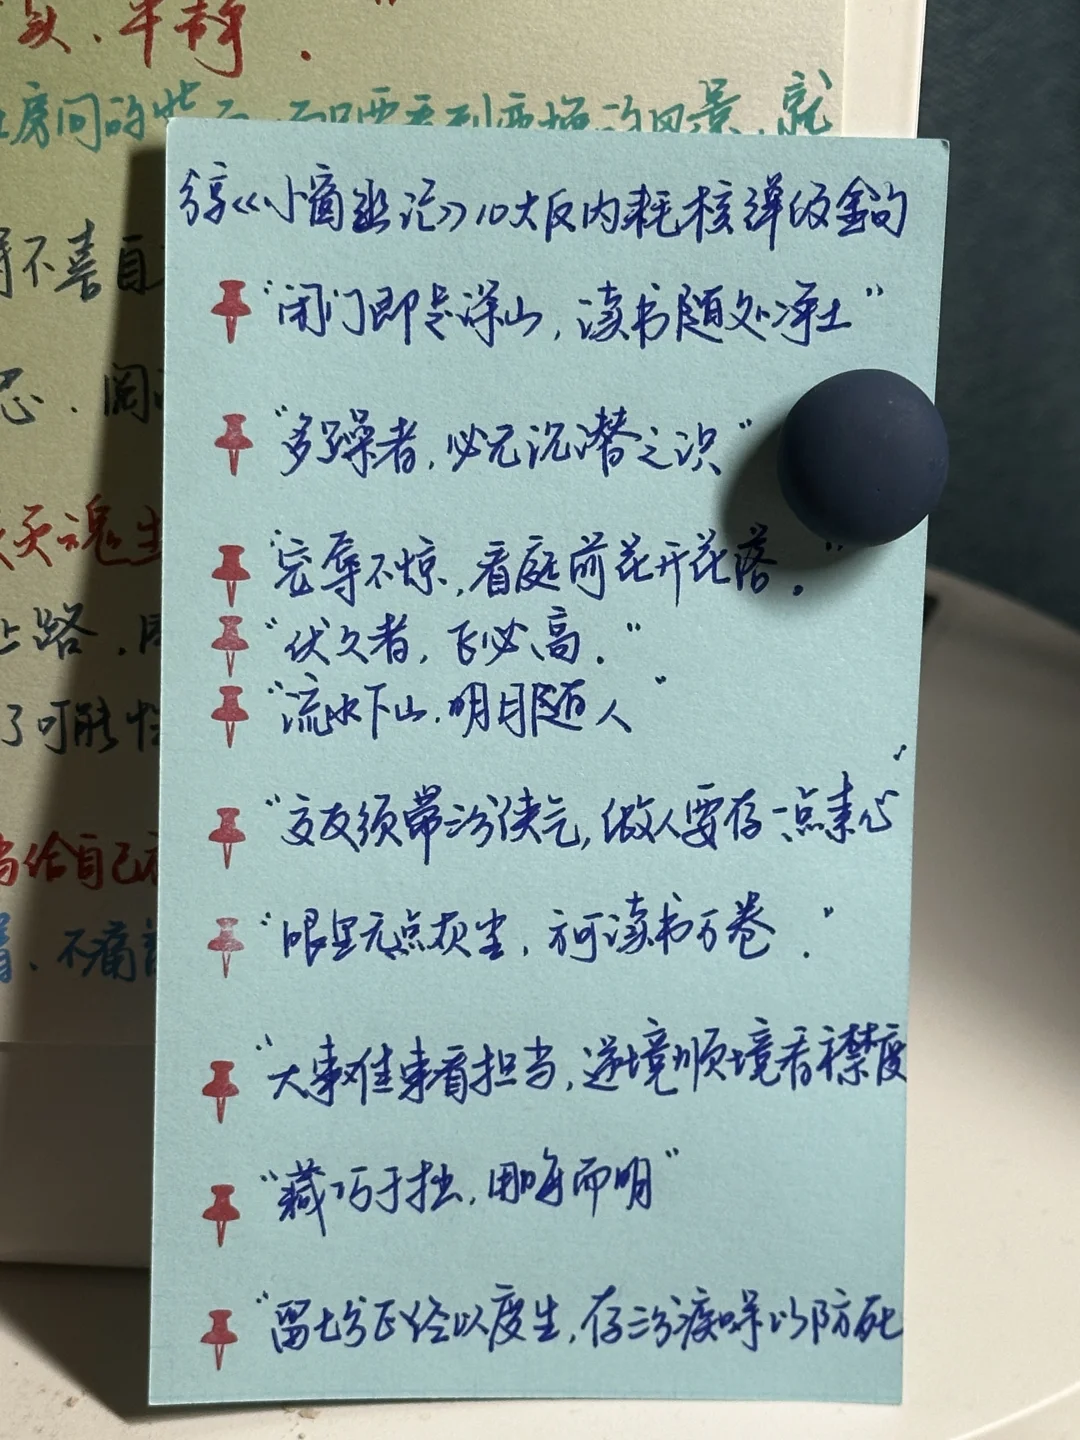 实、平静.”
房间的
就
不喜自
忍.阅
灵魂生
上路.
了可能性
给自己
不痛
分享《小窗幽记》10大反内耗核弹级金句
“闭门即是深山，读书随处净土”
“多躁者，必无沉潜之识”
“宠辱不惊，看庭前花开花落。”
“伏久者，飞必高.”
“流水下山.明月随人”
“交友须带三分侠气，做人要存一点素心”
“眼里无点灰尘，方可读书万卷.”
“大事难事看担当，逆境顺境看襟度
“藏巧于拙，用晦而明”
“留七分正经以度生，存三分痴呆以防死